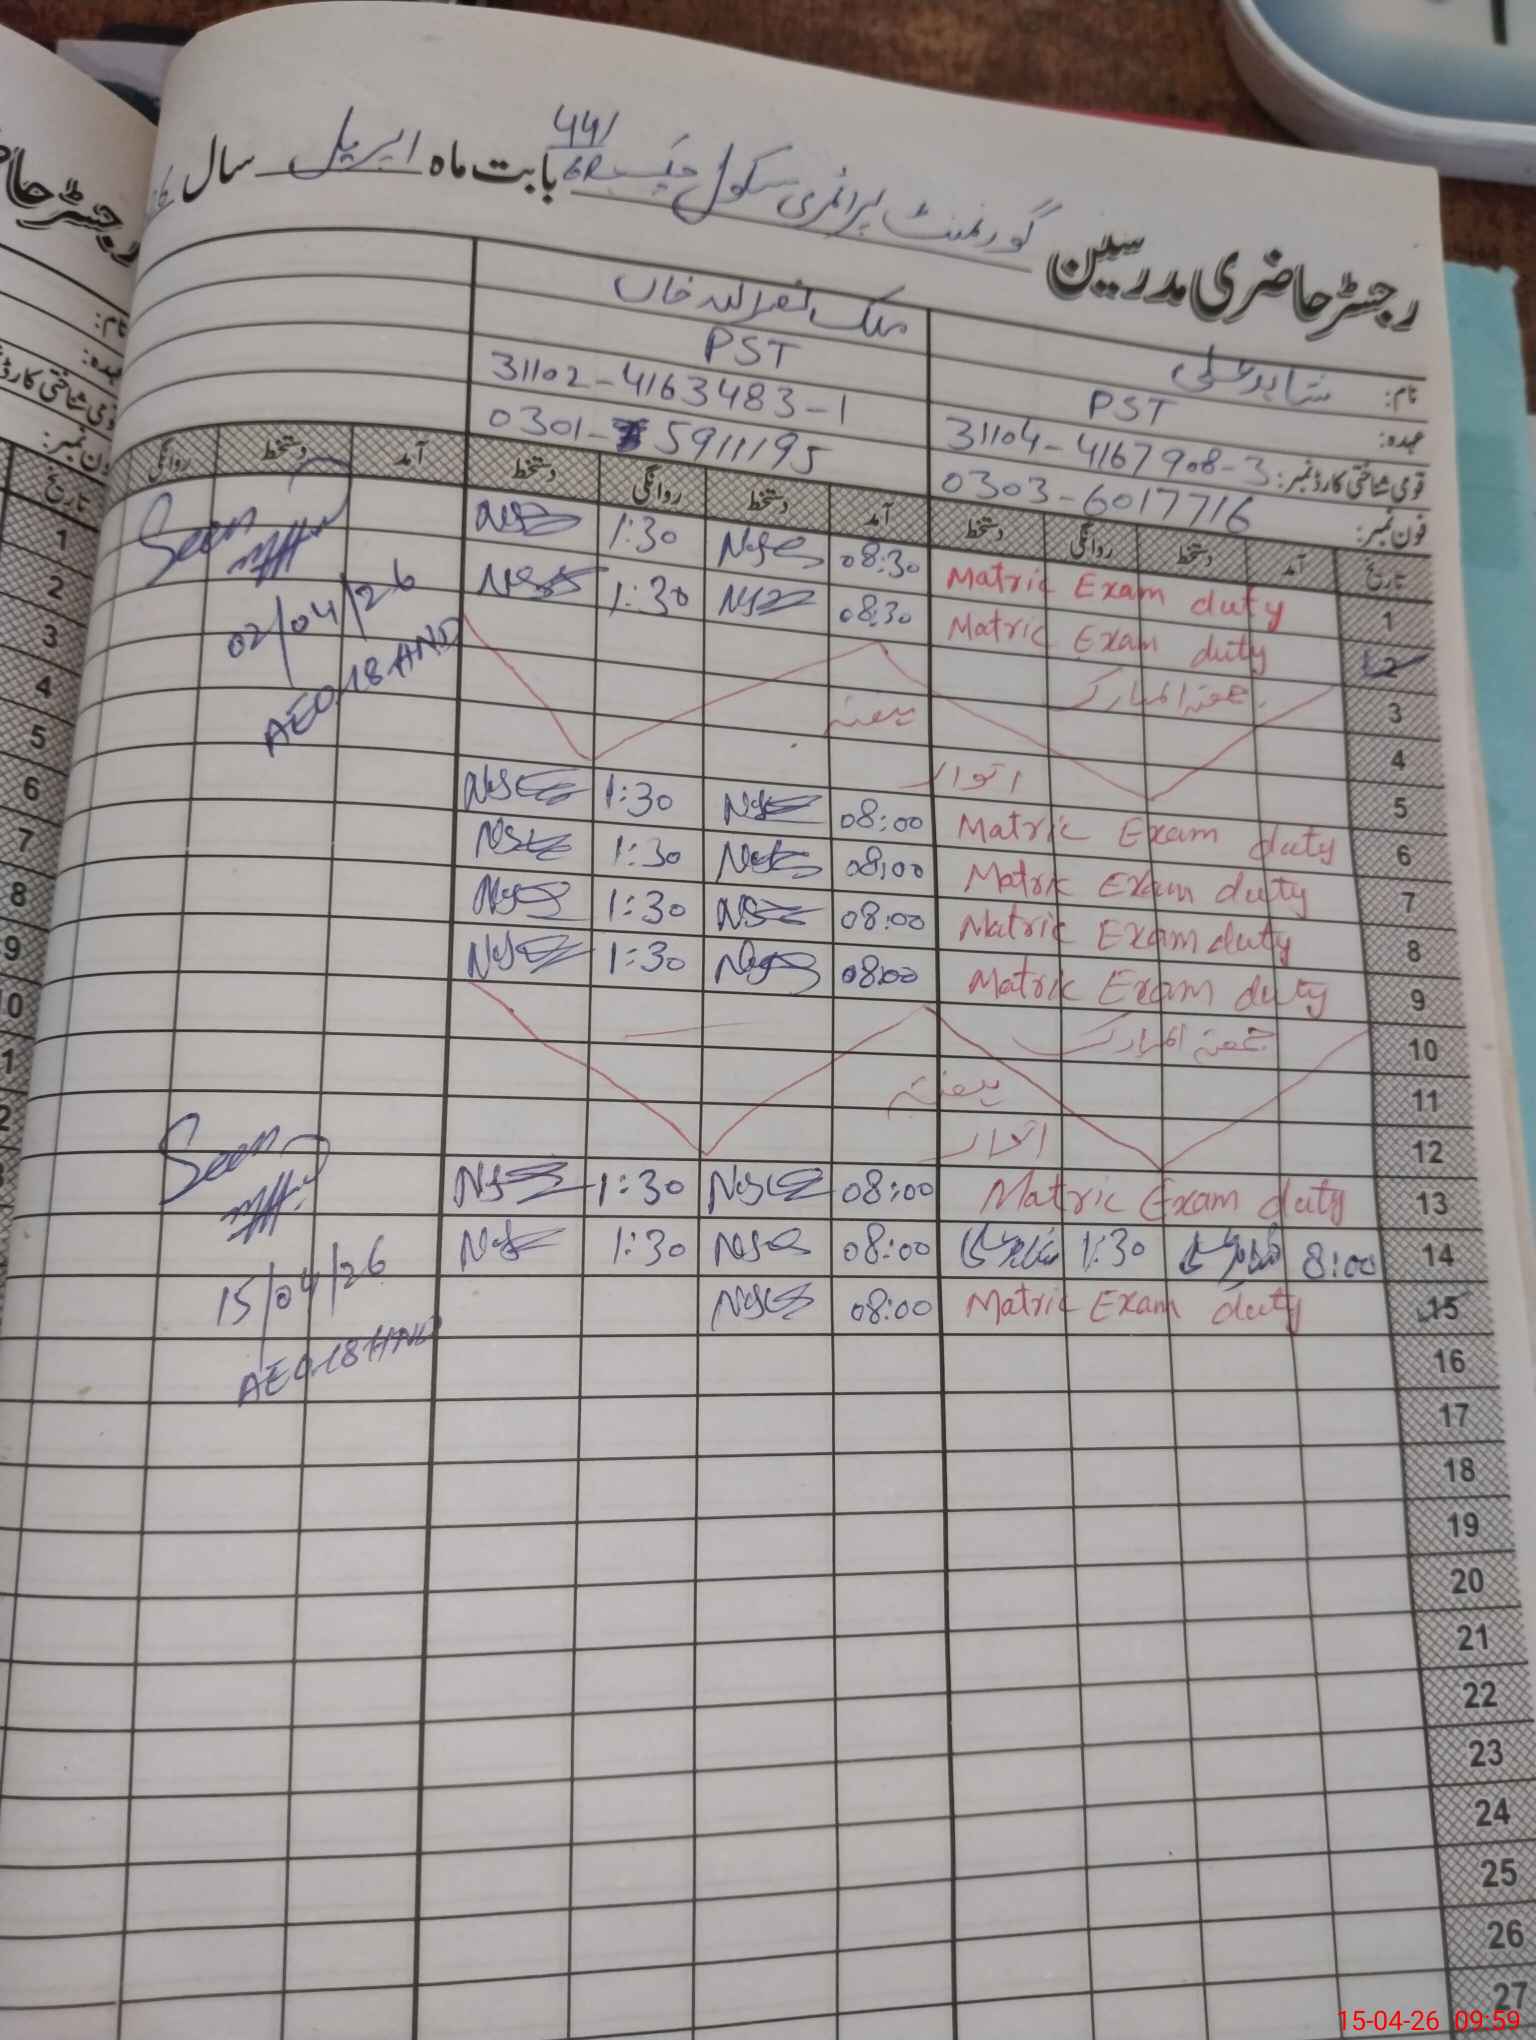 رجسٹر حاضری مدرسین گورنمنٹ پرائمری سکول چک 44/6R بابت ماہ اپریل سال
نام: شاہد علی ملک نصراللہ خاں
عہدہ: PST PST
قومی شناختی کارڈ نمبر: 31104-4167908-3 31102-4163483-1
فون نمبر: 0303-6017716 0301-5911195
تاریخ آمد دستخط روانگی دستخط آمد دستخط روانگی دستخط آمد دستخط روانگی
1 Matric Exam duty 08:30 1:30 Seen
2 Matric Exam duty 08:30 1:30 02/04/26
3 جمعتہ المبارک AEO 18 HND
4 ہفتہ
5 اتوار
6 Matric Exam duty 08:00 1:30
7 Matric Exam duty 08:00 1:30
8 Matric Exam duty 08:00 1:30
9 Matric Exam duty 08:00 1:30
10 جمعتہ المبارک
11 ہفتہ
12 اتوار
13 Matric Exam duty 08:00 1:30 Seen
14 8:00 شاہد علی 1:30 شاہد علی 08:00 1:30 15/04/26
15 Matric Exam duty 08:00 AEO 18 HND
16
17
18
19
20
21
22
23
24
25
26
27
رجسٹر حاضری
نام:
عہدہ:
قومی شناختی کارڈ
فون نمبر:
تاریخ
1
2
3
4
5
6
7
8
9
15-04-26 09:59